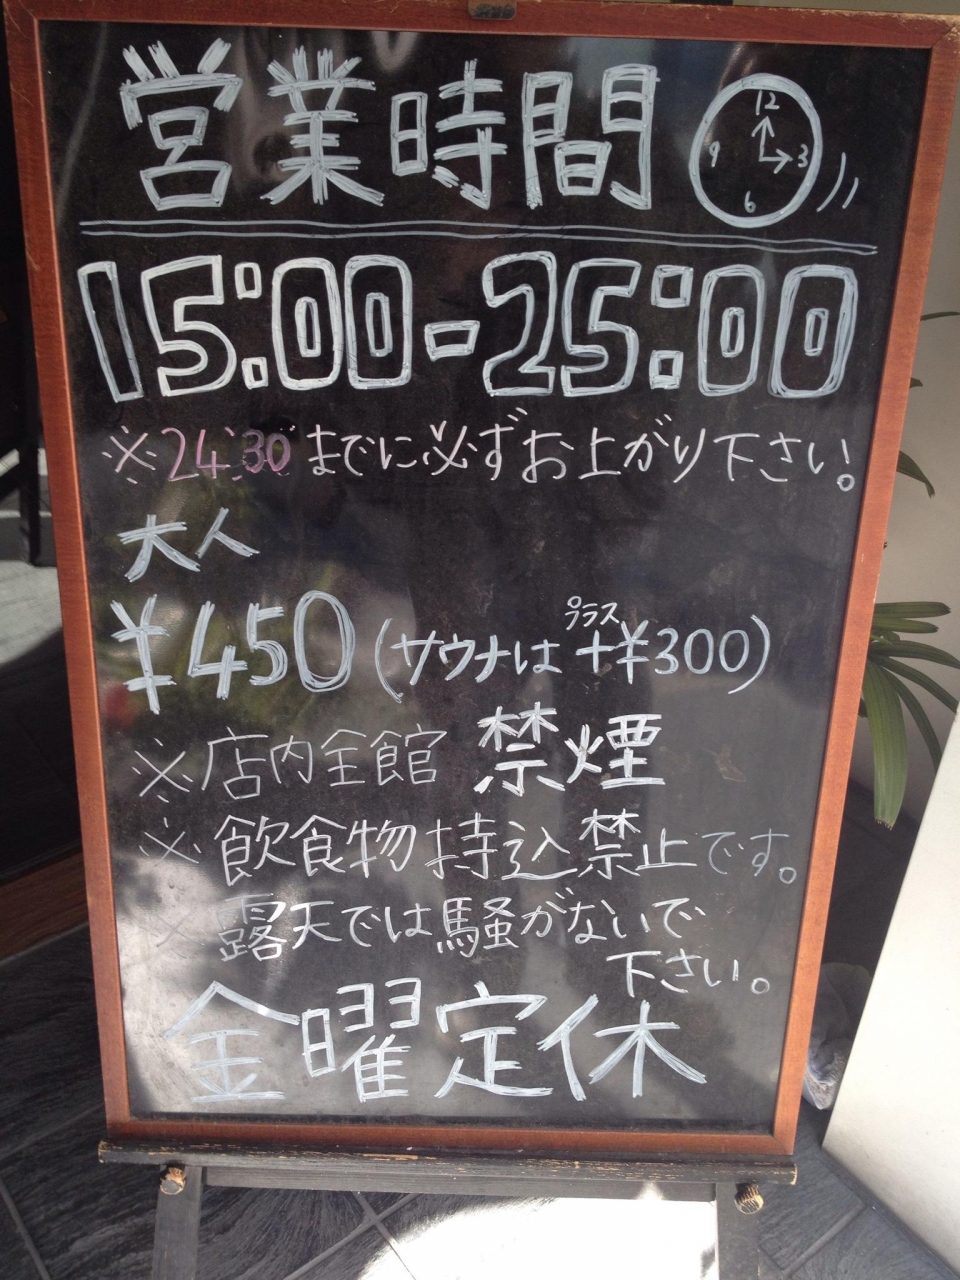 営業時間
12
3
6
9
15:00-25:00
※24:30までに必ずお上がり下さい!
大人
¥450(サウナは+¥300)
プラス
※店内全館 禁煙
※飲食物持込禁止です。
※露天では騒がないで
下さい。
金曜定休